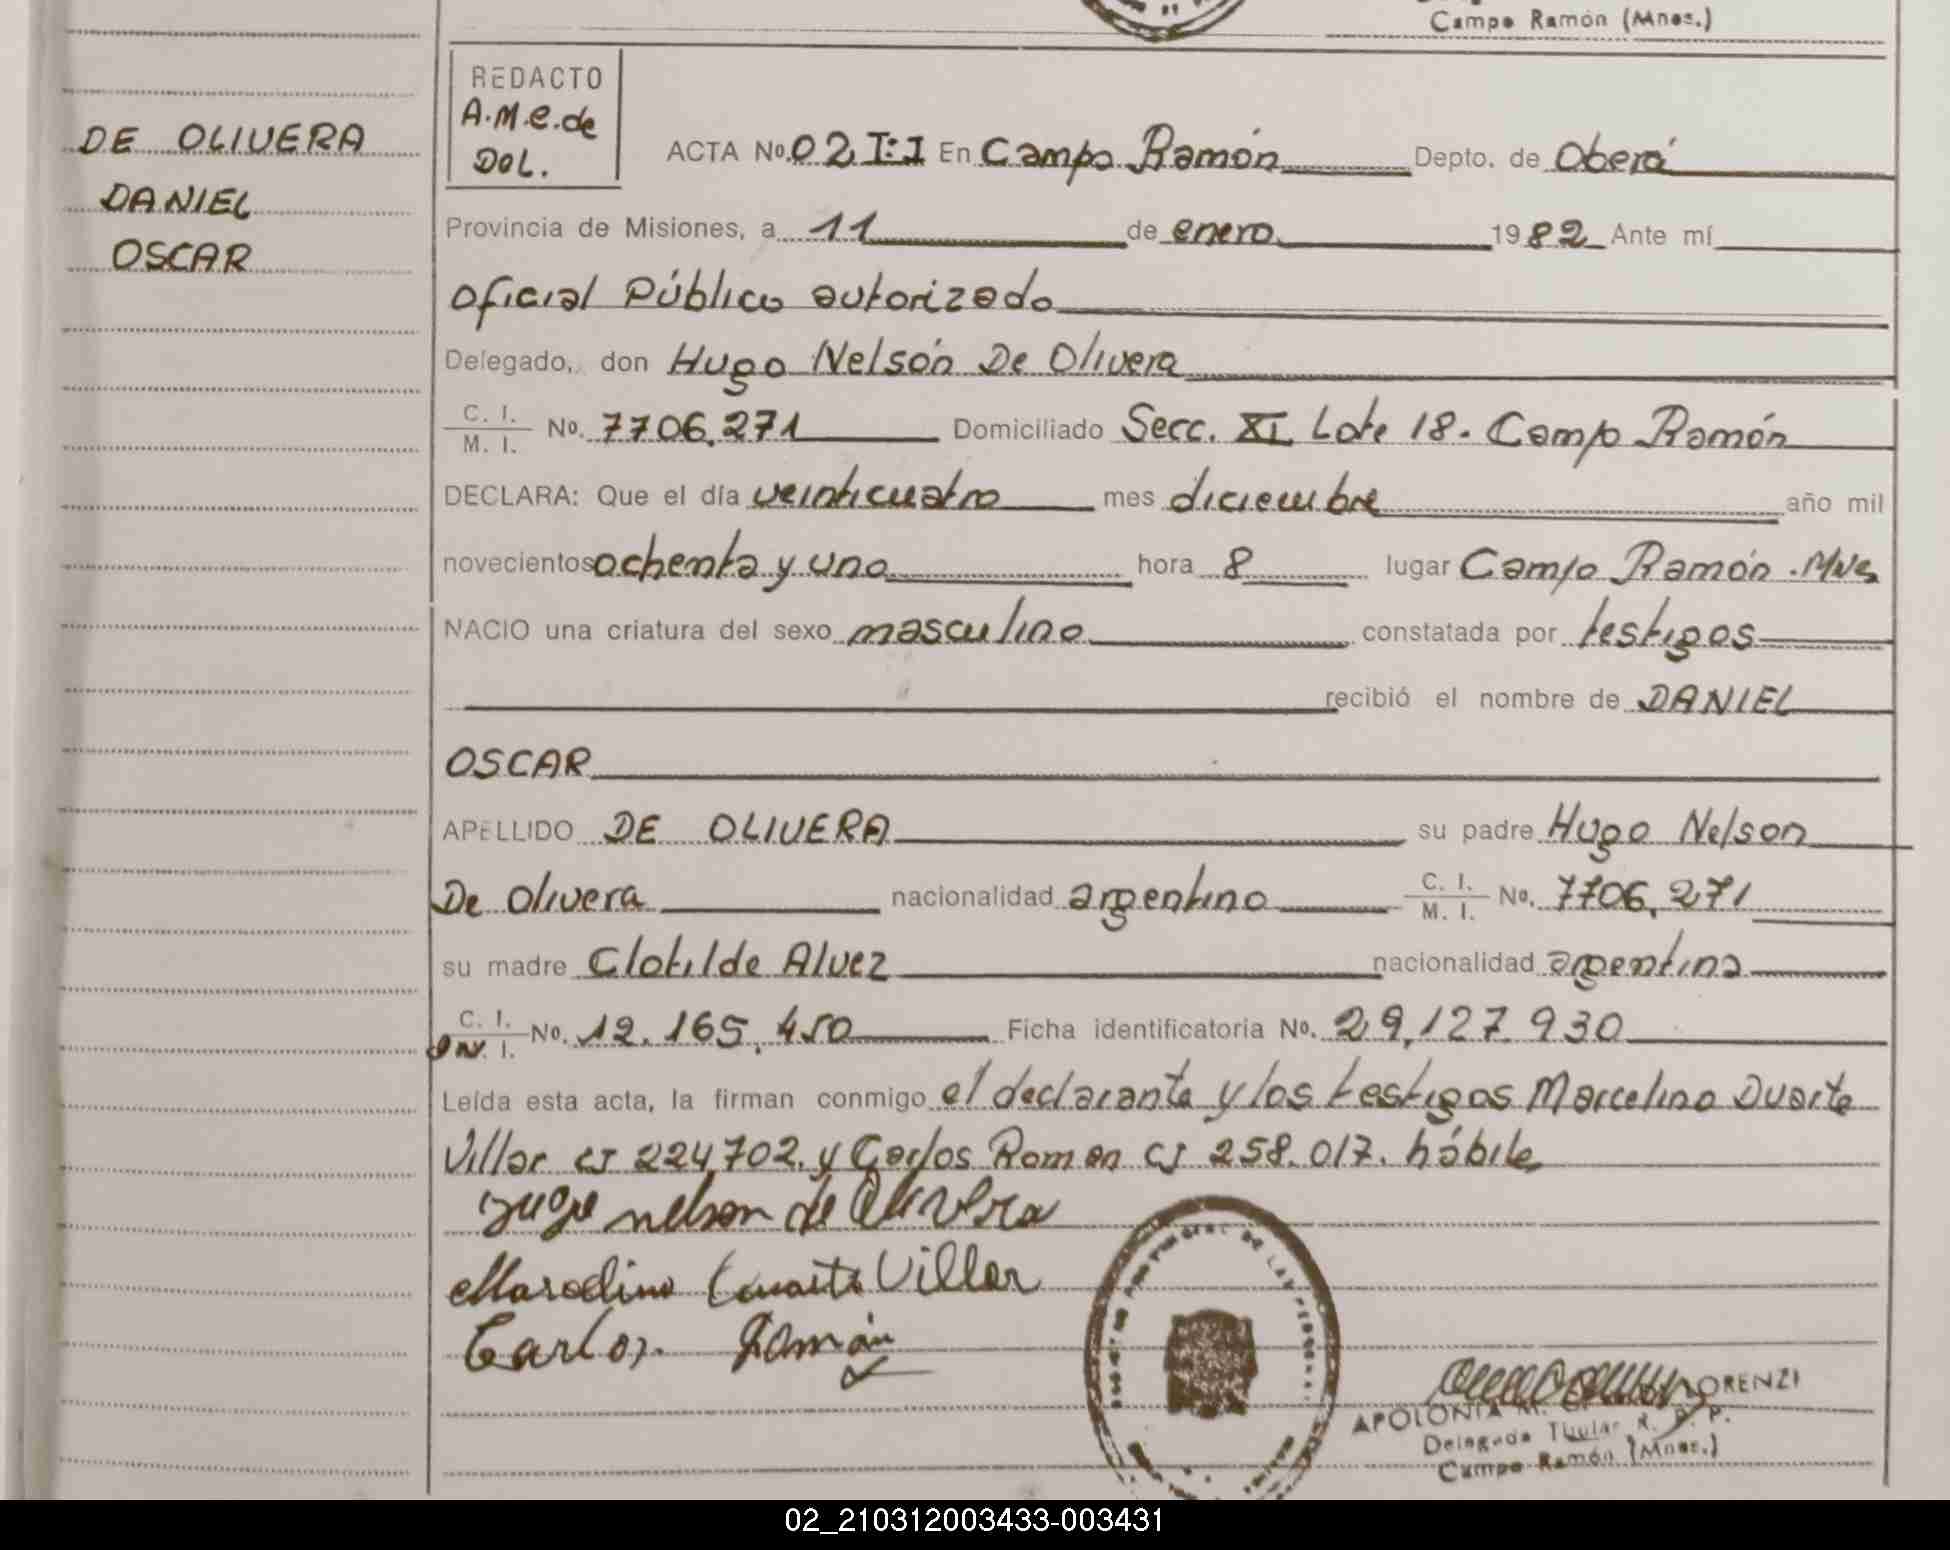 Campo Ramón (Mnes.)
DE OLIVERA
DANIEL
OSCAR
REDACTO
A.M.C.de
DOL.
ACTA No. 02 T:I En Campo Ramón Depto. de Oberá
Provincia de Misiones, a 11 de enero 1982 Ante mí
oficial Público autorizado
Delegado, don Hugo Nelsón De Olivera
C. I. / M. I. No. 7706.271 Domiciliado Secc. XI Lote 18. Campo Ramón
DECLARA: Que el día veinticuatro mes diciembre año mil
novecientos ochenta y uno hora 8 lugar Campo Ramón. Mnes
NACIO una criatura del sexo masculino constatada por testigos
recibió el nombre de DANIEL
OSCAR
APELLIDO DE OLIVERA su padre Hugo Nelson
De Olivera nacionalidad argentino C. I. / M. I. No. 7706.271
su madre Clotilde Alvez nacionalidad argentina
C. I. / I. No. 12.165.450 Ficha identificatoria No. 29.127.930
Leída esta acta, la firman conmigo el declarante y los testigos Marcelino Duarte
Villar CI 224.702. y Carlos Roman CI 258.017. hábiles
Hugo nelson de Olivera
Marcelino Duarte Villar
Carlos. Román
LORENZI
APOLONIA M.
Delegada Titular R. P. P.
Campo Ramón (Mnes.)
02_210312003433-003431